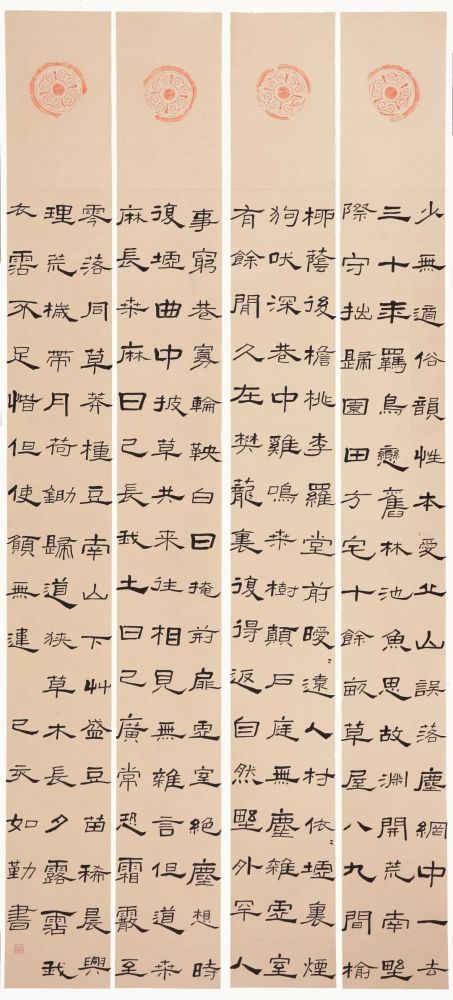 少無適俗韻性本愛丘山誤落塵網中一去
三十年羈鳥戀舊林池魚思故淵開荒南野
際守拙歸園田方宅十餘畝草屋八九間榆
柳蔭後檐桃李羅堂前曖〻遠人村依〻墟裏煙
狗吠深巷中雞鳴桑樹顛戶庭無塵雜虛室
有餘閒久在樊籠裏復得返自然野外罕人
事窮巷寡輪鞅白日掩荊扉虛室絕塵想時
復墟曲中披草共來往相見無雜言但道桑
麻長桑麻日已長我土日已廣常恐霜霰至
零落同草莽種豆南山下艸盛豆苗稀晨興
理荒穢帶月荷鋤歸道狹草木長夕露霑我
衣霑不足惜但使願無違 己亥如勤書